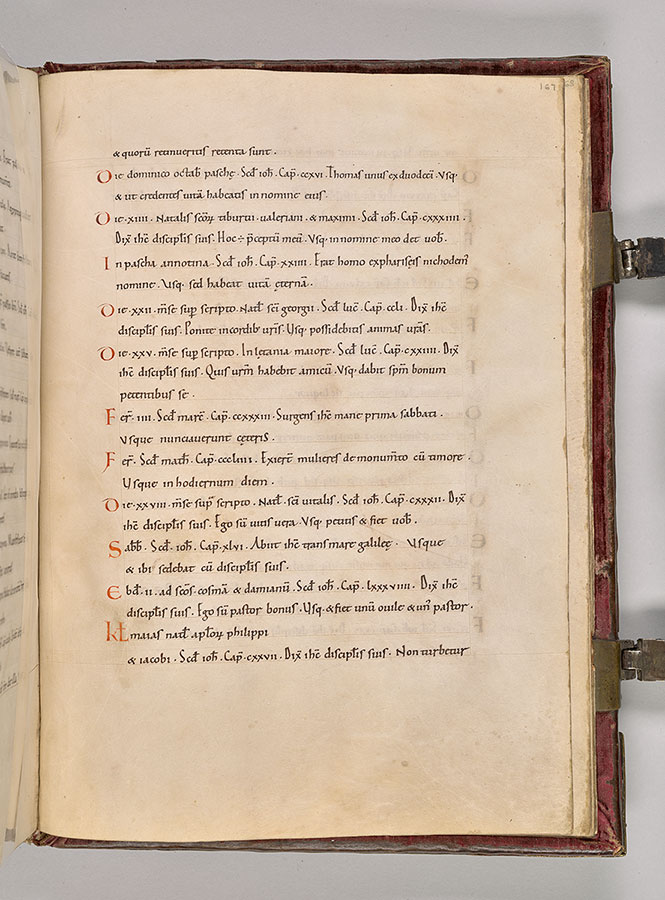 167
& quorū retinueritis retenta sunt .
Die dominico octab̄ paschę . Scd̄ ioh̄ . Cap̄ . ccxvi . Thomas unus ex duodecī . Vsq;
& ut credentes uitā habeatis in nomine eius .
Die . xiiii . Natalis scōꝝ tiburtii . ualeriani . & maximi . Scd̄ ioh̄ . Cap̄ . cxxxiiii .
Dix̄ ihc̄ discipłis suis . Hoc ÷ p̄ceptū meū . Vsq; in nomine meo det uob̄ .
In pascha annotina . Scd̄ ioh̄ . Cap̄ . xxiiii . Erat homo ex phariseis nichodem̄
nomine . Vsq; sed habeat uitā ęternā .
Die . xxii . m̄se sup̄ scripto . Nat̄l . sc̄i georgii . Scd̄ luc̄ . Cap̄ . ccli . Dix̄ ihc̄
discipłis suis . Ponite in cordib; ur̄is . Usq; possidebitis animas ur̄as .
Die . xxv . m̄se sup̄ scripto . In lętania maiore . Scd̄ luc̄ . Cap̄ . cxxiiii . Dix̄
ihc̄ discipłis suis . Quis ur̄m habebit amicū . Vsq; dabit sp̄m bonum
petentibus se .
Fer̄ . iiii . Scd̄ marc̄ . Cap̄ . ccxxxiii . Surgens ihc̄ mane prima sabbati .
Vsque nunciauerunt cęteris .
Fer̄ . Scd̄ math̄ . Cap̄ . cccliiii . Exier̄t mulieres de monum̄to cū timore .
Usque in hodiernum diem .
Die . xxviii . m̄se sup̄ scripto . Nat̄l . sc̄i uitalis . Scd̄ ioh̄ . Cap̄ . cxxxii . Dix̄
ihc̄ discipłis suis . Ego sū uitis uera . Vsq; petitis & fiet uob̄ .
Sabb̄ . Scd̄ . ioh̄ . Cap̄ . xlvi . Abiit ihc̄ trans mare galileę . Vsque
& ibi sedebat cū discipłis suis .
Ebd̄ . ii . ad sc̄os . cosmā & damianū . Scd̄ ioh̄ . Cap̄ . lxxxviiii . Dix̄ ihc̄
discipłis suis . Ego sū pastor bonus . Usq; & fiet unū ouile & un̄ pastor .
kł maias nat̄l apłoꝝ philippi
& iacobi . Scd̄ ioh̄ . Cap̄ . cxxvii . Dix̄ ihc̄ discipłis suis . Non turbetur